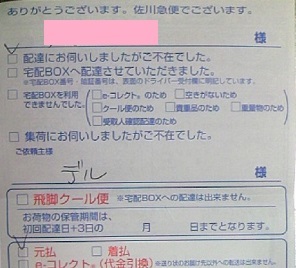 ありがとうございます。佐川急便でございます。
様
□ 配達にお伺いしましたがご不在でした。
□ 宅配BOXへ配達させていただきました。
※宅配BOX番号・暗証番号は、表面のドライバー受付欄に明記しています。
□ 宅配BOXを利用できませんでした。
□ e-コレクト。のため □ 空きがないため
□ クール便のため □ 貴重品のため □ 重量物のため
□ 受取人確認配達のため
□ 集荷にお伺いしましたがご不在でした。
ご依頼主様
デル 様
□ 飛脚クール便 ※宅配BOXへの配達は出来ません。
お荷物の保管期間は、
初回配達日+3日の 月 日までとなります。
□ 元払 □ 着払
□ e-コレクト。(代金引換)